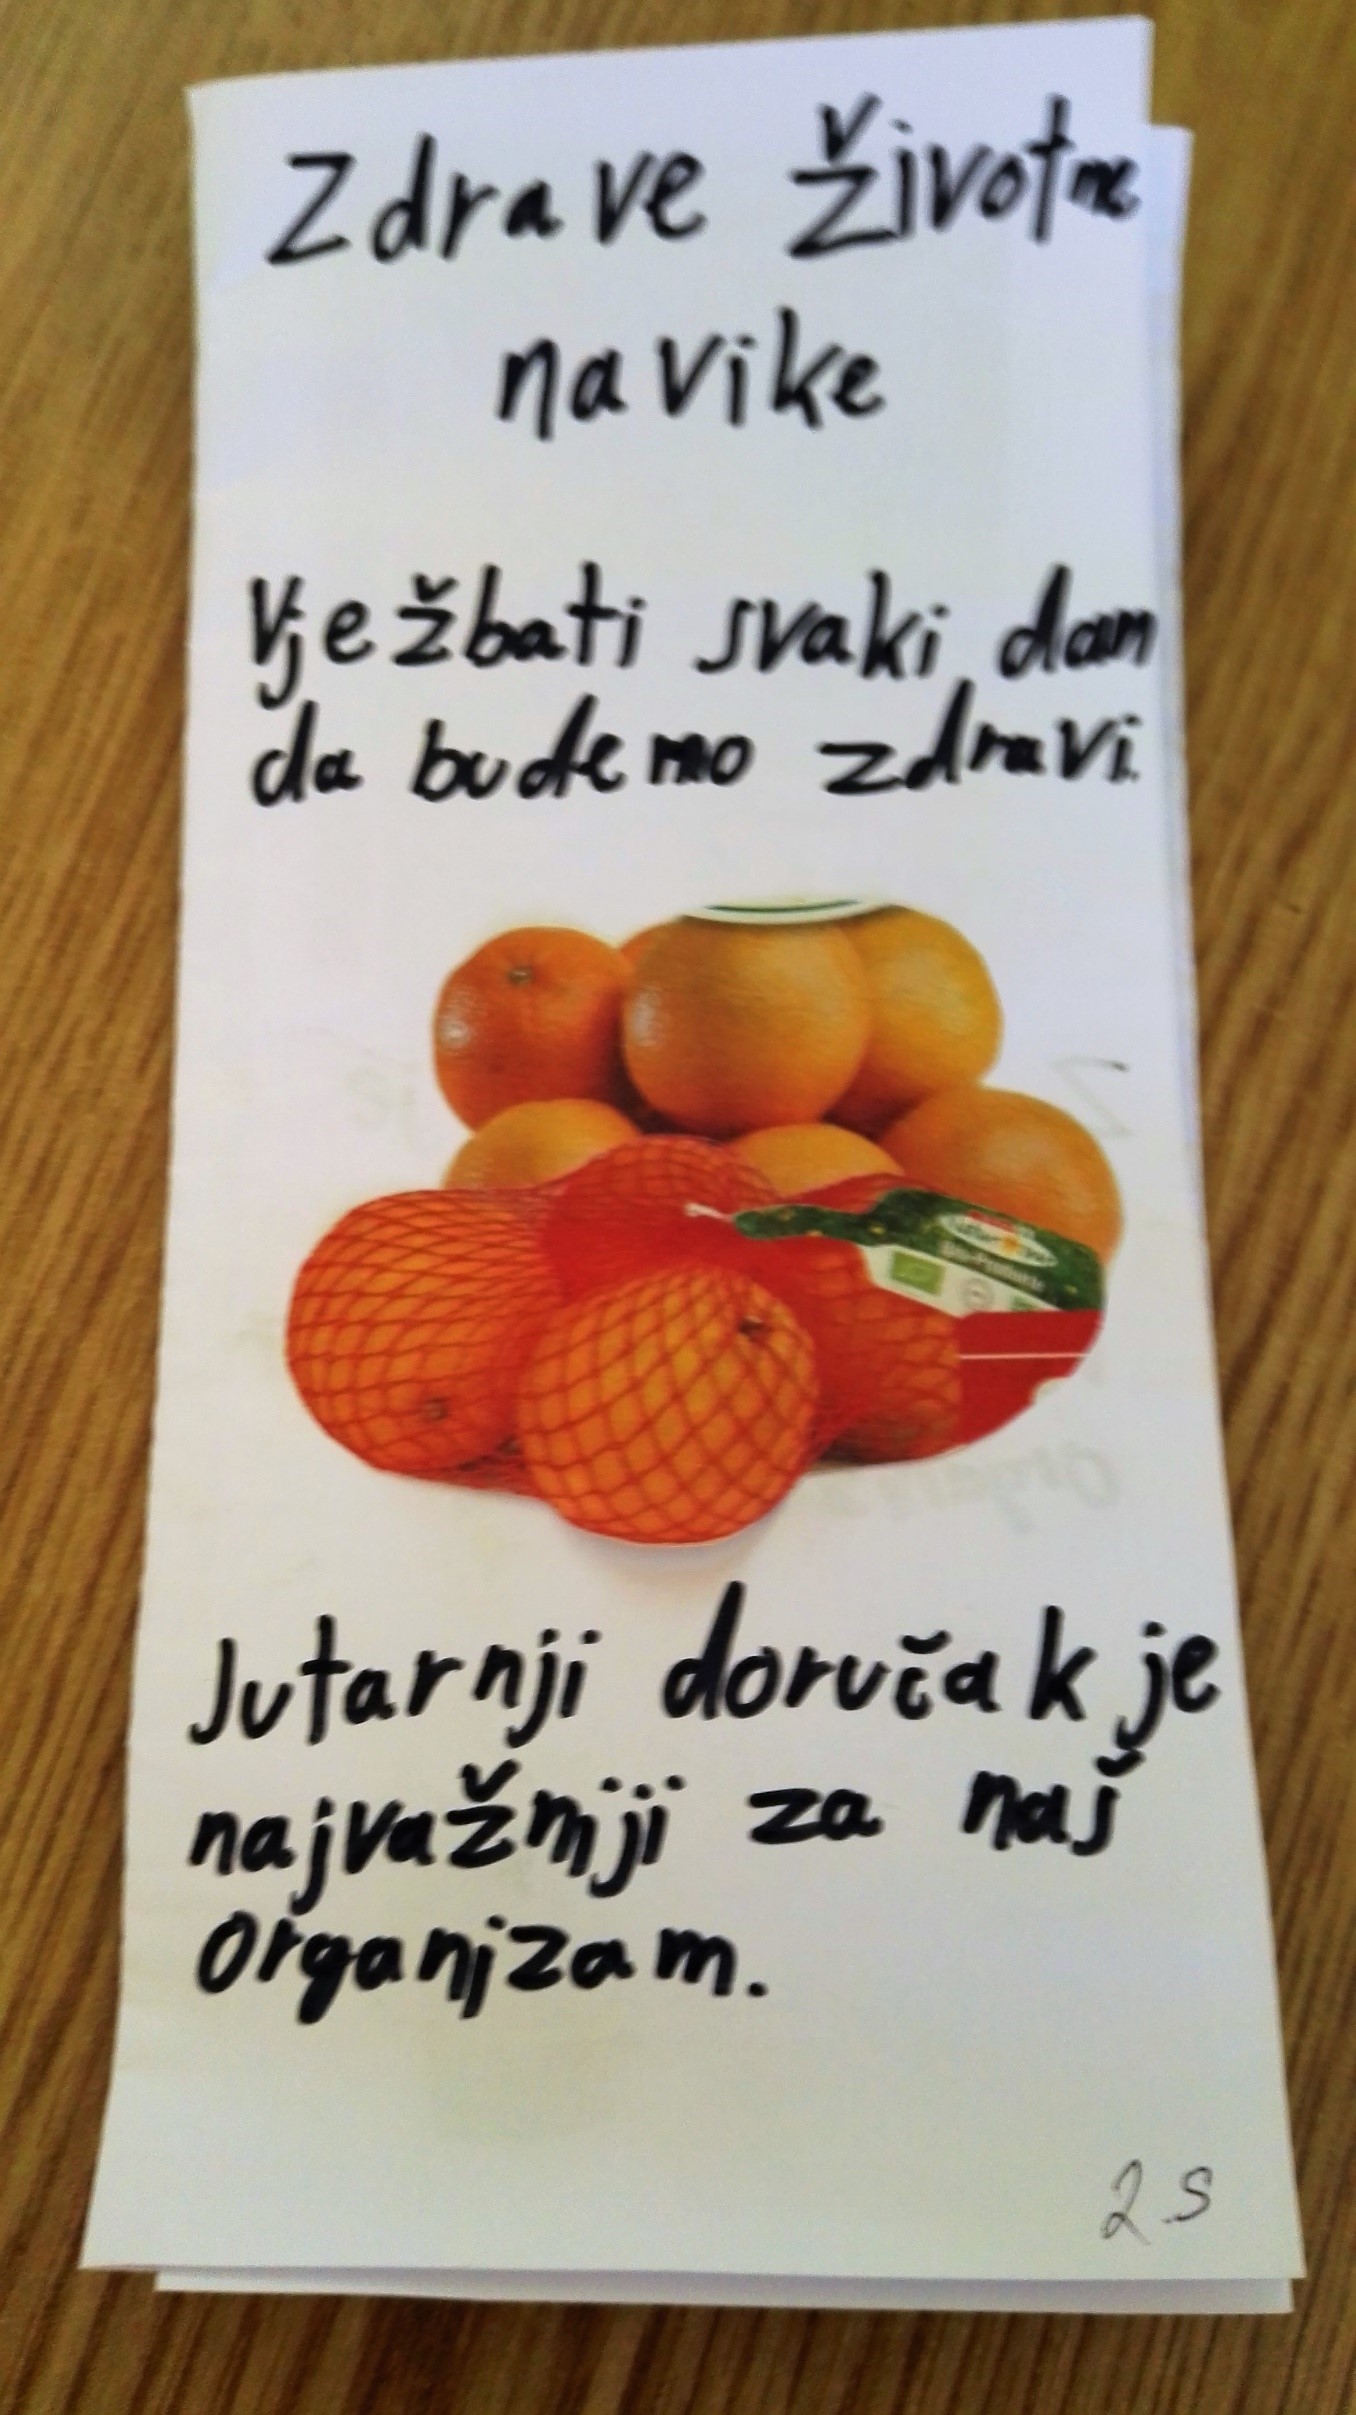 Zdrave životne
navike
Vježbati svaki dan
da budemo zdravi.
Jutarnji doručak je
najvažnji za naš
Organizam.
2.S